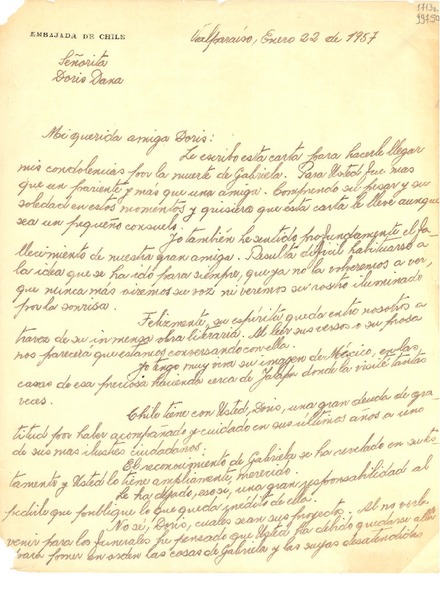 EMBAJADA DE CHILE
Valparaíso, Enero 22 de 1957
Señorita
Doris Dana
Mi querida amiga Doris:
Le escribo esta carta para hacerle llegar
mis condolencias por la muerte de Gabriela. Para Usted fue mas
que un pariente y más que una amiga. Comprendo su pesar y su
soledad en estos momentos y quisiera que esta carta le lleve aunque
sea un pequeño consuelo.
Yo también he sentido profundamente el fa-
llecimiento de nuestra gran amiga. Resulta difícil habituarse a
la idea que se ha ido para siempre, que ya no la volveremos a ver,
que nunca más oiremos su voz ni veremos su rostro iluminado
por la sonrisa.
Felizmente, su espíritu queda entre nosotros a
traves de su inmensa obra literaria. Al leer sus versos o su prosa
nos parecerá que estamos conversando con ella.
Yo tengo muy viva su imagen de México, en las
casas de esa preciosa hacienda cerca de Jalapa donde la visité tantas
veces.
Chile tiene con Usted, Doris, una gran deuda de gra-
titud por haber acompañado y cuidado en sus últimos años a uno
de sus mas ilustres ciudadanos.
El reconocimiento de Gabriela se ha revelado en su tes-
tamento y Usted lo tiene ampliamente merecido.
Le ha dejado, eso sí, una gran responsabilidad al
pedirle que publique lo que queda inédito de ella.
No sé, Doris, cuales sean sus proyectos. Al no verla
venir para los funerales he pensado que Usted ha debido quedarse allá
para poner en orden las cosas de Gabriela y las suyas desatendidas